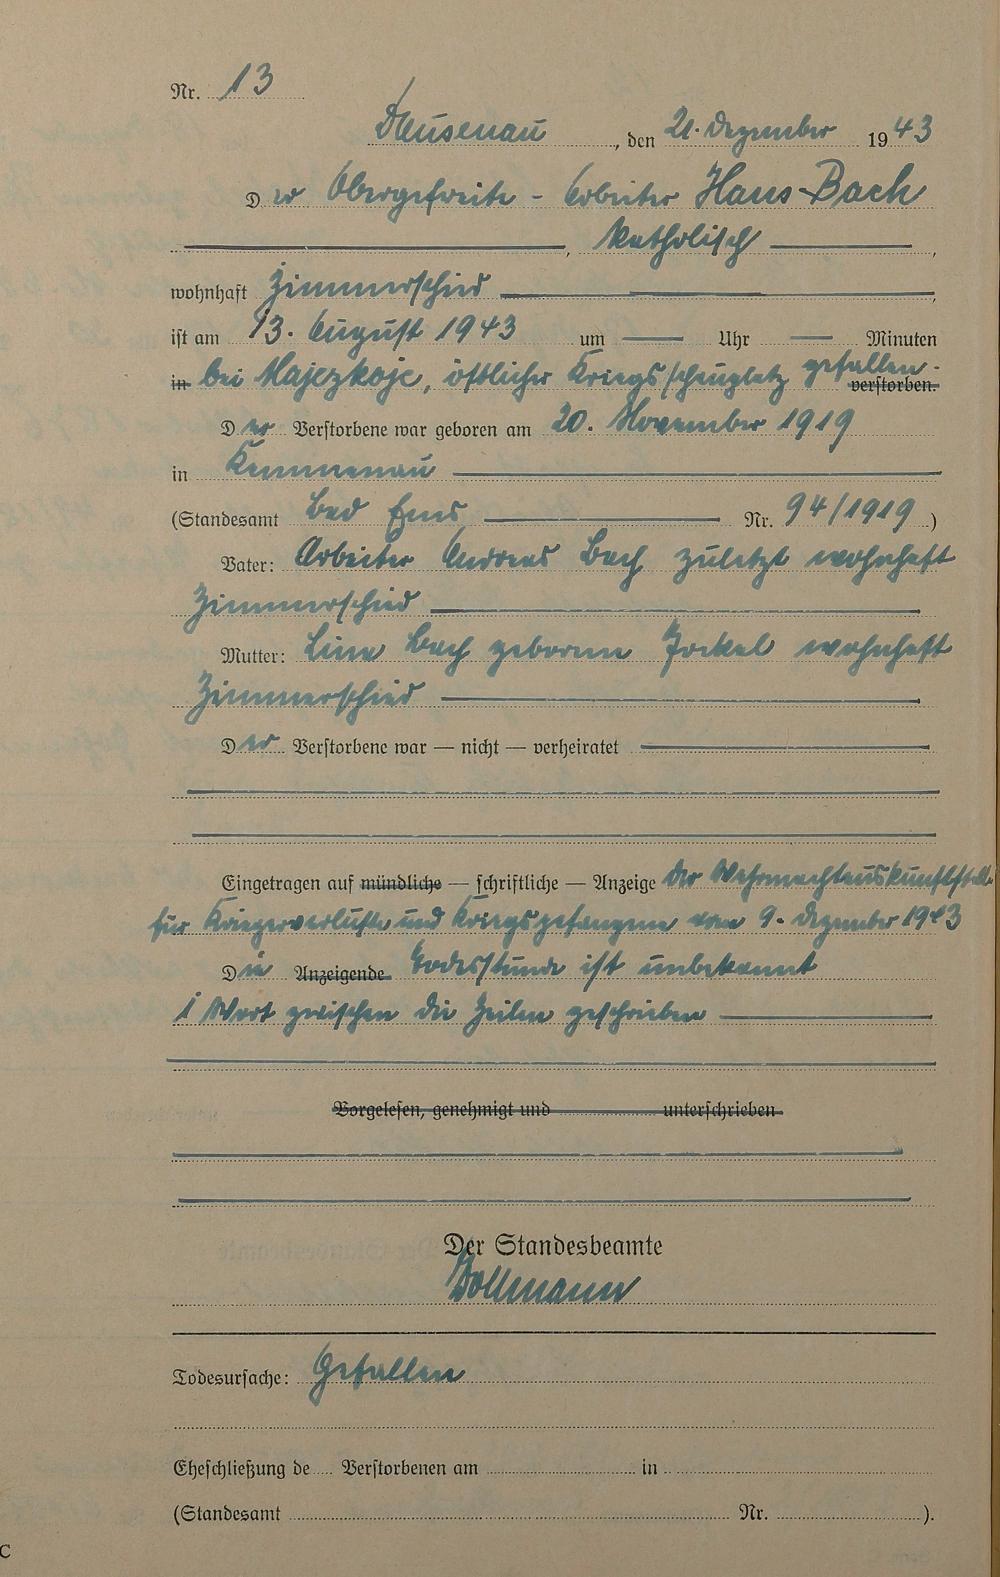 Nr. 13
Dausenau, den 21. Dezember 1943
Der Obergefreite - Arbeiter Hans Bach
, katholisch,
wohnhaft Zimmerschied,
ist am 13. August 1943 um — Uhr — Minuten
in bei Majezkoje, östlicher Kriegsschauplatz gefallen. verstorben.
Der Verstorbene war geboren am 20. November 1919
in Kemmenau
(Standesamt Bad Ems Nr. 94/1919)
Vater: Arbeiter Andreas Bach zuletzt wohnhaft
Zimmerschied
Mutter: Lina Bach geborene wohnhaft
Zimmerschied
Der Verstorbene war — nicht — verheiratet
Eingetragen auf mündliche — schriftliche — Anzeige der Wehrmachtauskunftstelle
für Kriegerverluste und Kriegsgefangene vom 9. Dezember 1943
Die Anzeigende Todesstunde ist unbekannt
1 Wort zwischen die Zeilen geschrieben
Vorgelesen, genehmigt und unterschrieben
Der Standesbeamte
Todesursache: Gefallen
Eheschließung de Verstorbenen am in
(Standesamt Nr. ).
C